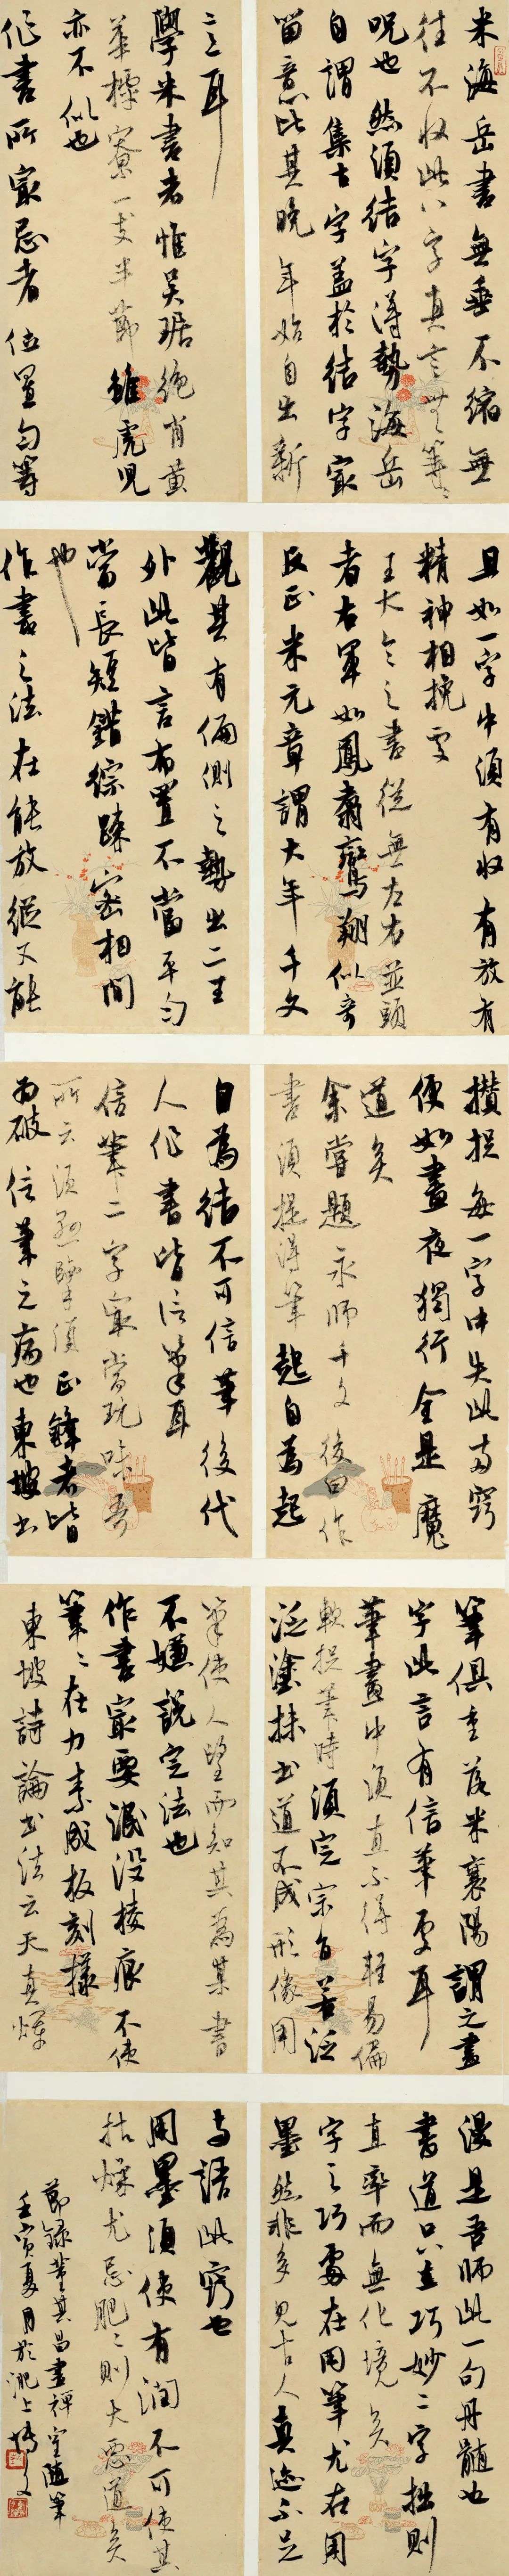 米海岳書無垂不縮無
往不收此八字真言無等等
咒也然須結字得勢海岳
自謂集古字蓋於結字最
留意比其晚年始自出新
意耳
學米書者惟吳琚絕肖黃
華樗寮一支半節雖虎兒
亦不似也
作書所最忌者位置勻等
且如一字中須有收有放有
精神相挽處
王大令之書從無左右並頭
者右軍如鳳翥鸞翔似奇
反正米元章謂大年千文
觀其有偏側之勢出二王
外此皆言布置不當平勻
當長短錯綜疎密相間
也
作書之法在能放縱又能
攢捉每一字中失此兩竅
便如晝夜獨行全是魔
道矣
余嘗題永師千文後曰作
書須提得筆起自為起
自為結不可信筆後代
人作書皆信筆耳
信筆二字最當玩味吾
所云須懸腕須正鋒者皆
為破信筆之病也東坡書
筆俱重落米襄陽謂之畫
字此言有信筆處耳
筆畫中須直不得輕易偏
軟捉筆時須定宗旨若泛
泛塗抹書道不成形像用
筆使人望而知其為某書
不嫌說定法也
作書最要泯沒棱痕不使
筆筆在力素成板刻樣
東坡詩論書法云天真爛
漫是吾師此一句丹髓也
書道只在巧妙二字拙則
直率而無化境矣
字之巧處在用筆尤在用
墨然非多見古人真迹不足
與語此竅也
用墨須使有潤不可使其
枯燥尤忌肥肥則大惡道矣
節錄董其昌畫禪室隨筆
壬寅夏月於淝上博文